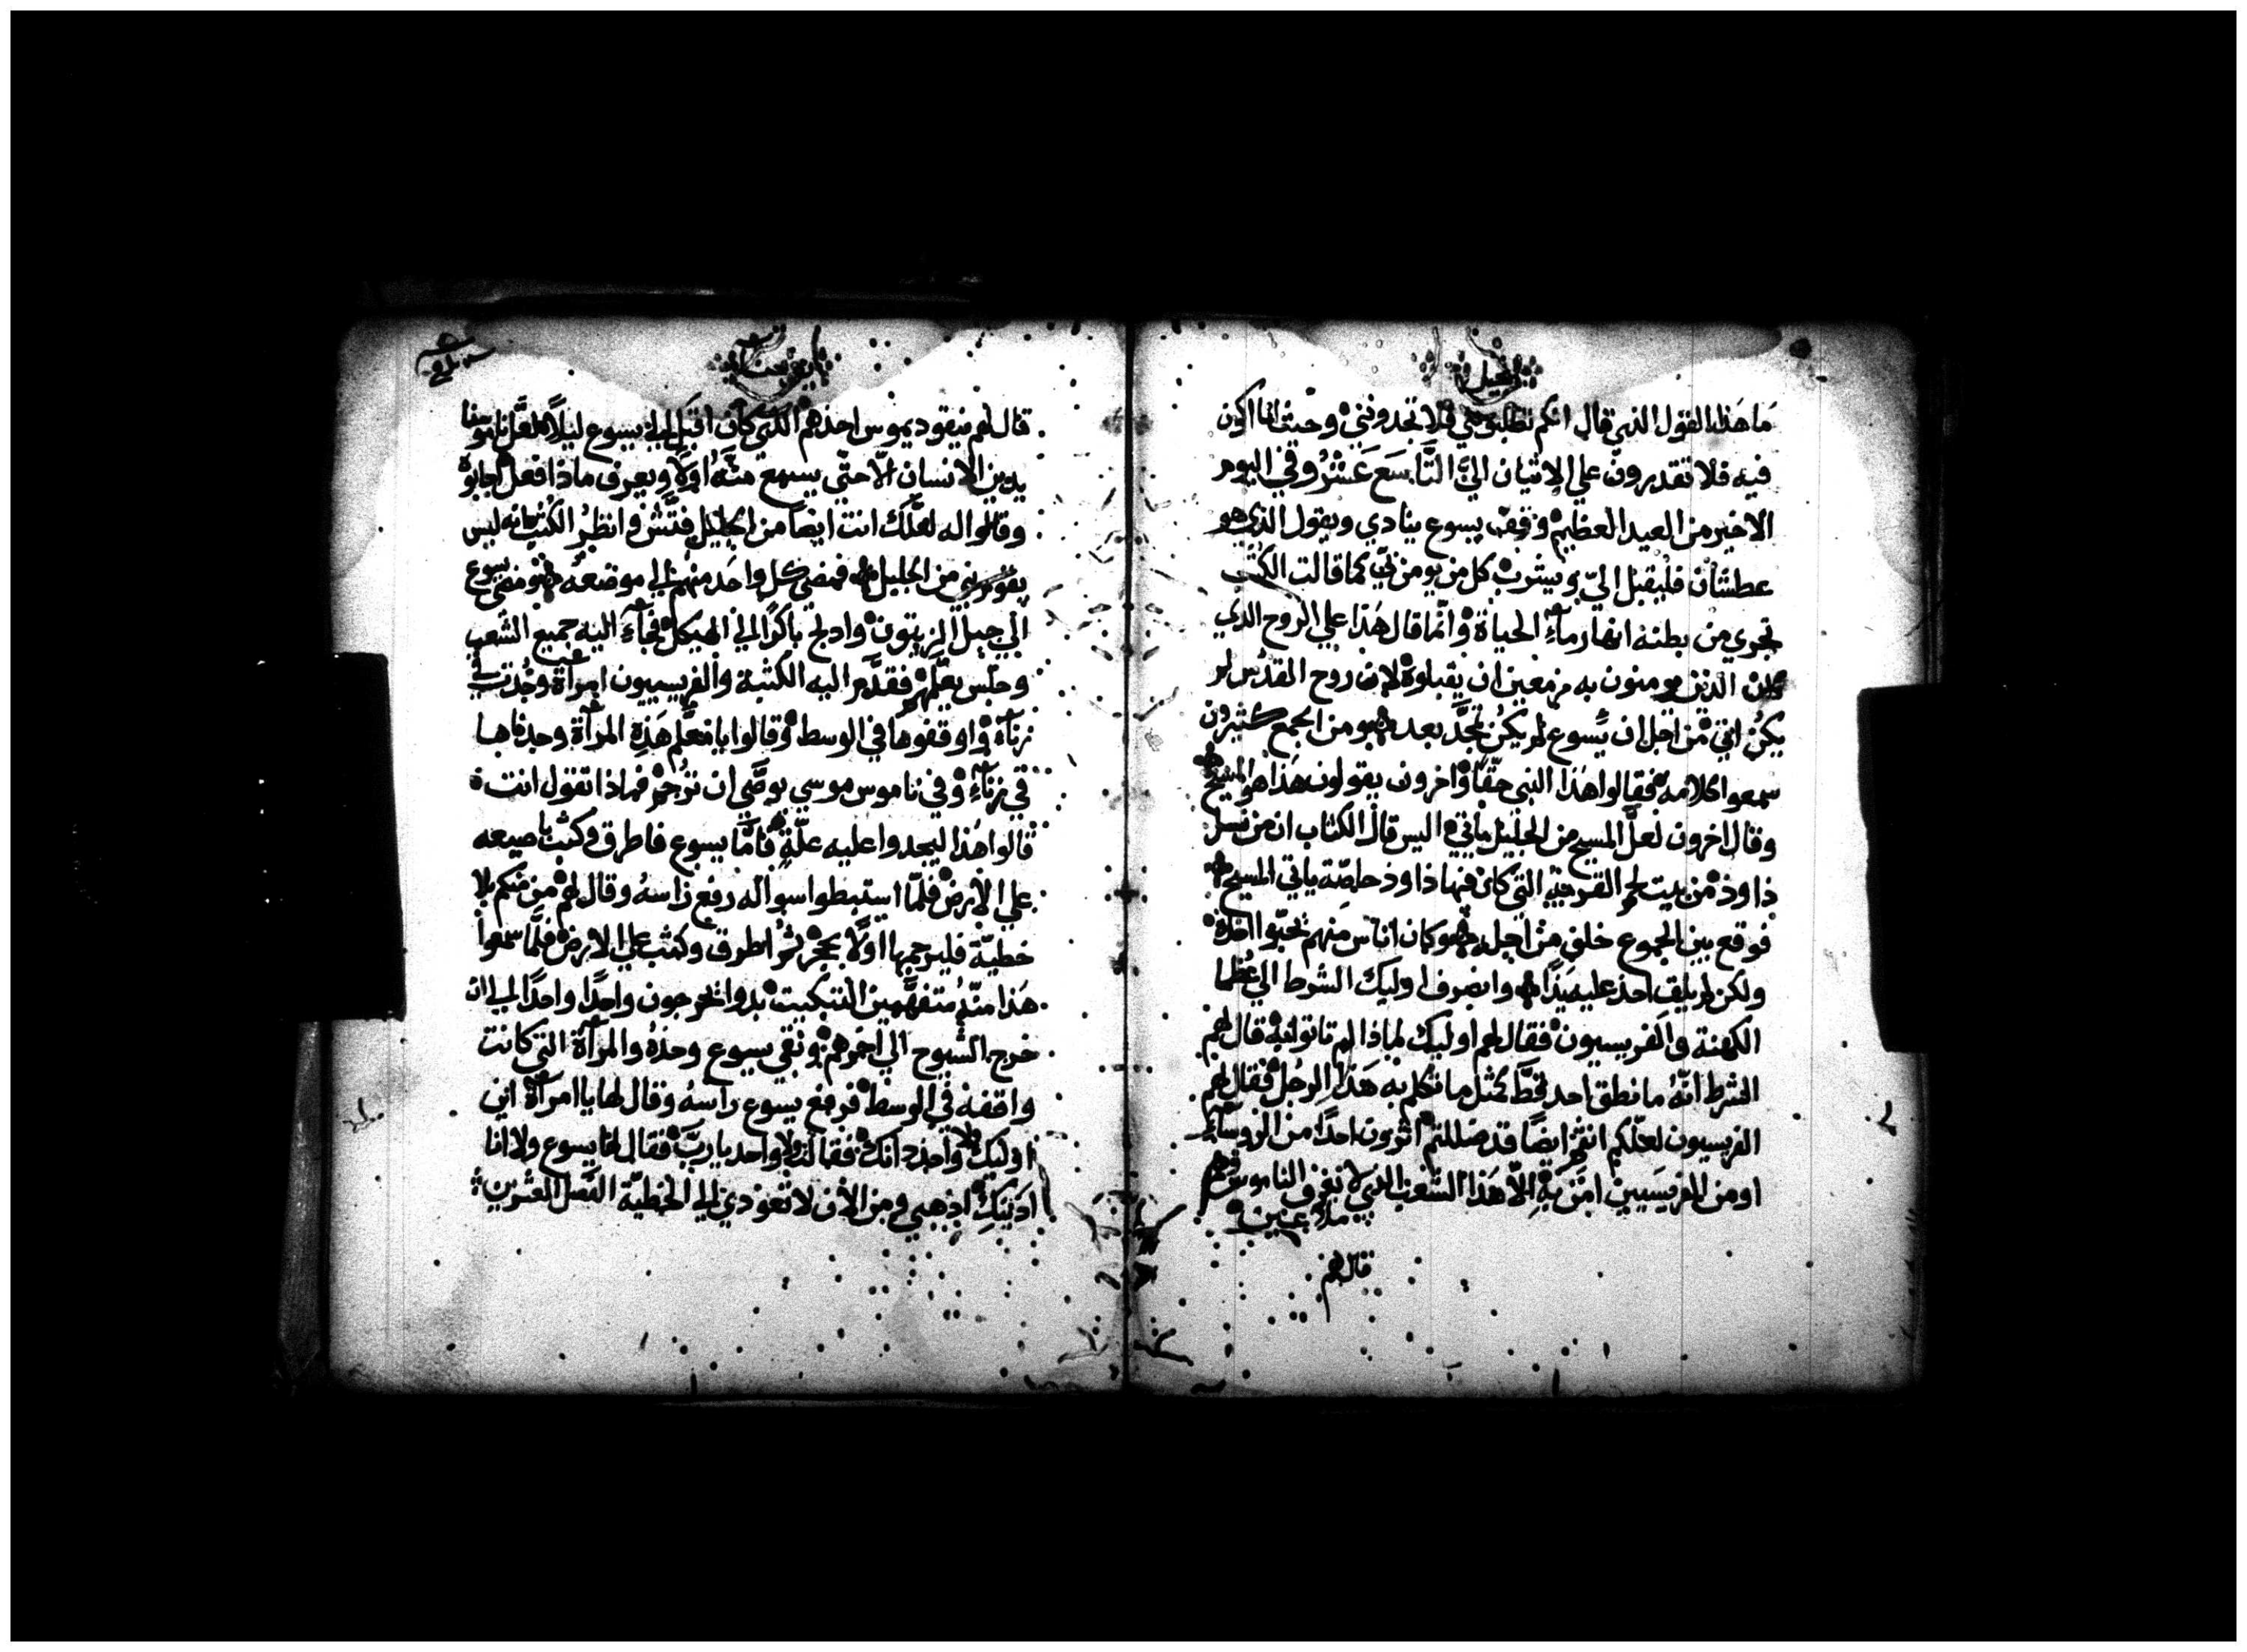 انجيل
ما هذا القول الذي قال انكم تطلبوني فلا تجدونني وحيث انا اكون
فيه فلا تقدرون علي الاتيان اليَّ التَّاسَع عَشرُ وفي اليوم
الاخير من العيد العظيم وقف يسوع ينادي ويقول الذي هو
عطشان فليقبل اليّ ويشرب كل من يومن بي كما قالت الكتب
تجري من بطنه انهار مآءِ الحياة وانّما قال هذا علي الروح الذي
كان الذين يومنون به مزمعين ان يقبلوه لان روح القدس لم
يكن اتي من اجل ان يسوع لم يكن تمجَّد بعد ومن الجمع كثيرون
سمعوا كلامه فقالوا هذا النبي حقّاً واخرون يقولون هذا هو المسيح
وقال اخرون لعلَّ المسيح من الجليل ياتي اليس قال الكتاب ان من نسل
داود من بيت لحم القرية التي كان فيها داود خاصّة ياتي المسيح
فوقع بين الجموع خلف من اجله وكان اناس منهم تحبّوا اخذه
ولكن لم يلق احد عليه يداً وانصرف اوليك الشرط الي عظما
الكهنة والفريسيون فقال لهم اوليك لماذا لم تاتوا به قال لهم
الشرط انّهُ ما نطق احد قطّ كمثل ما تكلم به هذا الرجل فقال لهم
الفريسيون لعلّكم انتم ايضاً قد ضللتم اترون احداً من الروسآءِ
او من الفريسيين امَن به الاّ هذا الشعب الذي لا يعرف الناموس وهم
ملاعين
قال لهم
يوحنا
قال لهم نيقوديموس احدهم الذي كان اقبل الي يسوع ليلاً لعلّ ناموسنا
يدين الانسان الاّ حتّي يسمع منهُ اوّلاً ويعرف ماذا فعل اجابوه
وقالوا له لعلّك انت ايضاً من الجليل فتّش وانظرُ الكتب انه ليس
يقوم نبي من الجليل فمضي كل واحد منهم الي موضعه ومضي يسوع
الي جبل الزيتون وادلج باكراً الي الهيكل فجآءَ اليه جميع الشعب
وجلس يعلّمهم فقدَّم اليه الكتبة والفريسيون امراة وجدت في
زنآءٍ واوقفوها في الوسط وقالوا يا معلّم هذهِ المرآة وجدناها
في زنآءٍ وفي ناموس موسي يوصّي ان ترجم فماذا تقول انت
قالوا هذا ليجدوا عليه علّةٍ فامّا يسوع فاطرق وكتب باصبعه
علي الارض فلمّا استبطوا سواله رفع راسهُ وقال لهم من منكم بلا
خطيّة فليرجمها اوّلاً بحجرٍ ثمُ اطرق وكتب علي الارض فلمَّا سمعوا
هذا منهُ متفهّمين التبكيت بدوا يخرجون واحداً واحداً الي ان
خرج الشيوخ الي اخرهم وبقي يسوع وحدهُ والمرآة التي كانت
واقفه في الوسط فرفع يسوع راسهُ وقال لها يا امراة اين
اوليك ولا واحد دانك فقالت ولا واحد يا ربّ فقال لها يسوع ولا انا
ادينكِ اذهبي ومن الآن لا تعودي الي الخطيّة الفصل العشرين